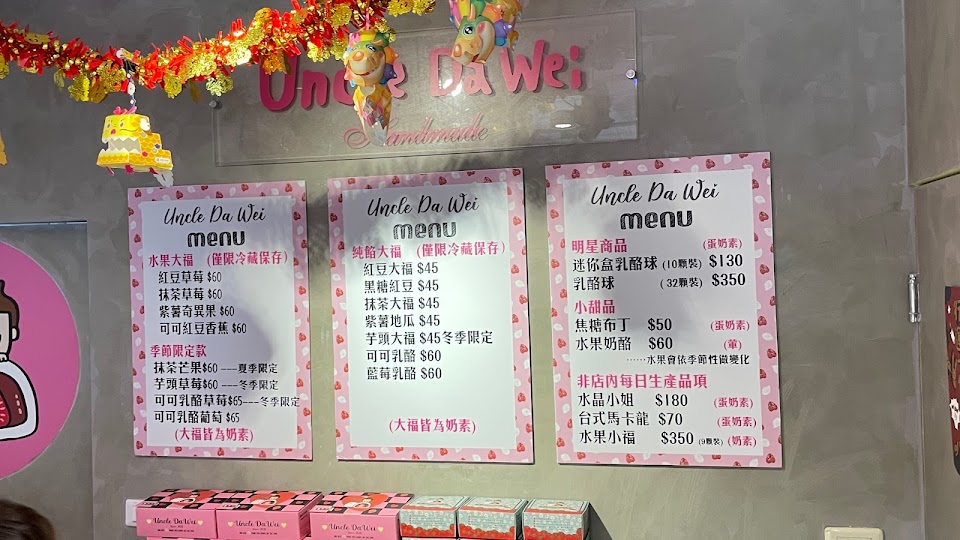 Uncle Da Wei
Handmade
Uncle Da Wei
menu
水果大福 (僅限冷藏保存)
紅豆草莓 $60
抹茶草莓 $60
紫薯奇異果 $60
可可紅豆香蕉 $60
季節限定款
抹茶芒果$60 ---夏季限定
芋頭草莓$60 ---冬季限定
可可乳酪草莓$65---冬季限定
可可乳酪葡萄 $65
(大福皆為奶素)
Uncle Da Wei
menu
純餡大福 (僅限冷藏保存)
紅豆大福 $45
黑糖紅豆 $45
抹茶大福 $45
紫薯地瓜 $45
芋頭大福 $45冬季限定
可可乳酪 $60
藍莓乳酪 $60
(大福皆為奶素)
Uncle Da Wei
menu
明星商品 (蛋奶素)
迷你盒乳酪球 (10顆裝) $130
乳酪球 (32顆裝) $350
小甜品
焦糖布丁 $50 (蛋奶素)
水果奶酪 $60 (葷)
······水果會依季節性做變化
非店內每日生產品項
水晶小姐 $180 (蛋奶素)
台式馬卡龍 $70 (蛋奶素)
水果小福 $350 (9顆裝) (奶素)
Uncle Da Wei
Uncle Da Wei
Uncle Da Wei